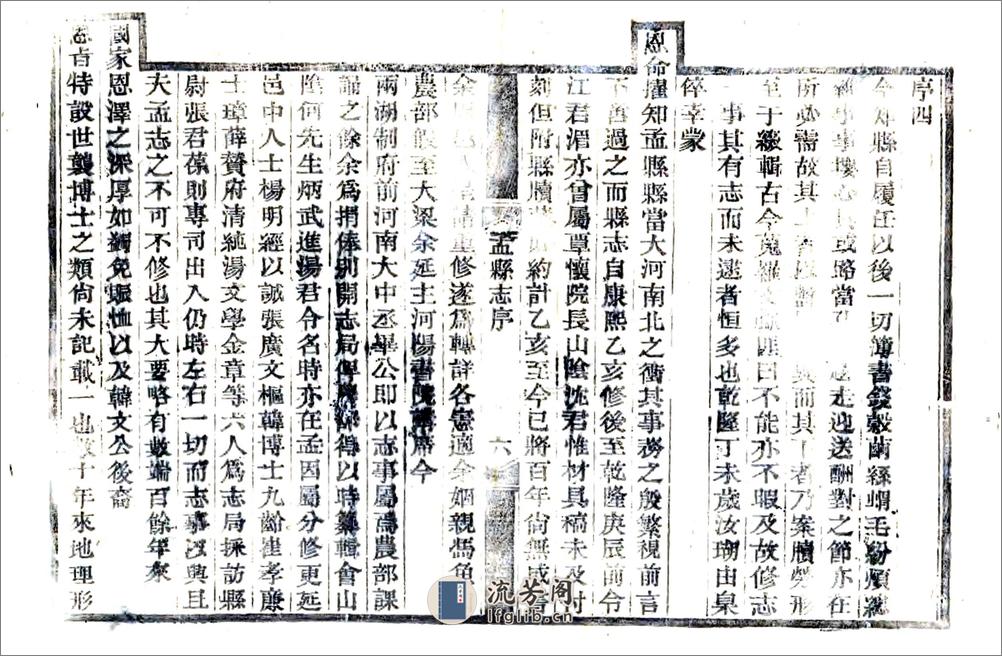 序四
令知縣自履任以後一切簿書錢穀繭絲蝟毛紛煩
事 心 或路當 走迎送酬對之節亦在
所必需故其 而其 者乃案牘勞形
至于綴輯古今蒐羅文 曰不能亦不暇及故修志
一事其有志而未逮者恒多也乾隆丁未歲汝瑚由泉
倅幸蒙
恩命擢知孟縣縣當大河南北之衝其事務之殷繁視前言
不啻過之而縣志自康熙乙亥修後至乾隆庚辰前令
江君湄亦曾屬覃懷院長山陰沈君惟材具稿未及付
刻但附縣牘 約計乙亥至今已將百年尚無成書
孟縣志序
六
余 邑人 請重修遂為轉詳各憲適余姻親馮魚
農部 至大梁余延主河陽書院講席今
兩湖制府前河南大中丞畢公即以志事屬馮農部課
誦之餘余為捐俸別開志局俾 得以時纂輯會山
陰何先生炳武進湯君令名時亦在孟因屬分修更延
邑中人士楊明經以誠張廣文樞韓博士九齡崔孝廉
士璋薛贊府清純湯文學金章等六人為志局採訪縣
尉張君葆則專司出入仍時左右一切而志事 興且
夫孟志之不可不修也其大要略有數端百餘年來
國家恩澤之深厚如蠲免賑恤以及韓文公後裔
恩旨特設世襲博士之類尚未記載一也數十年來地理形
流芳閣
lfglib.cn